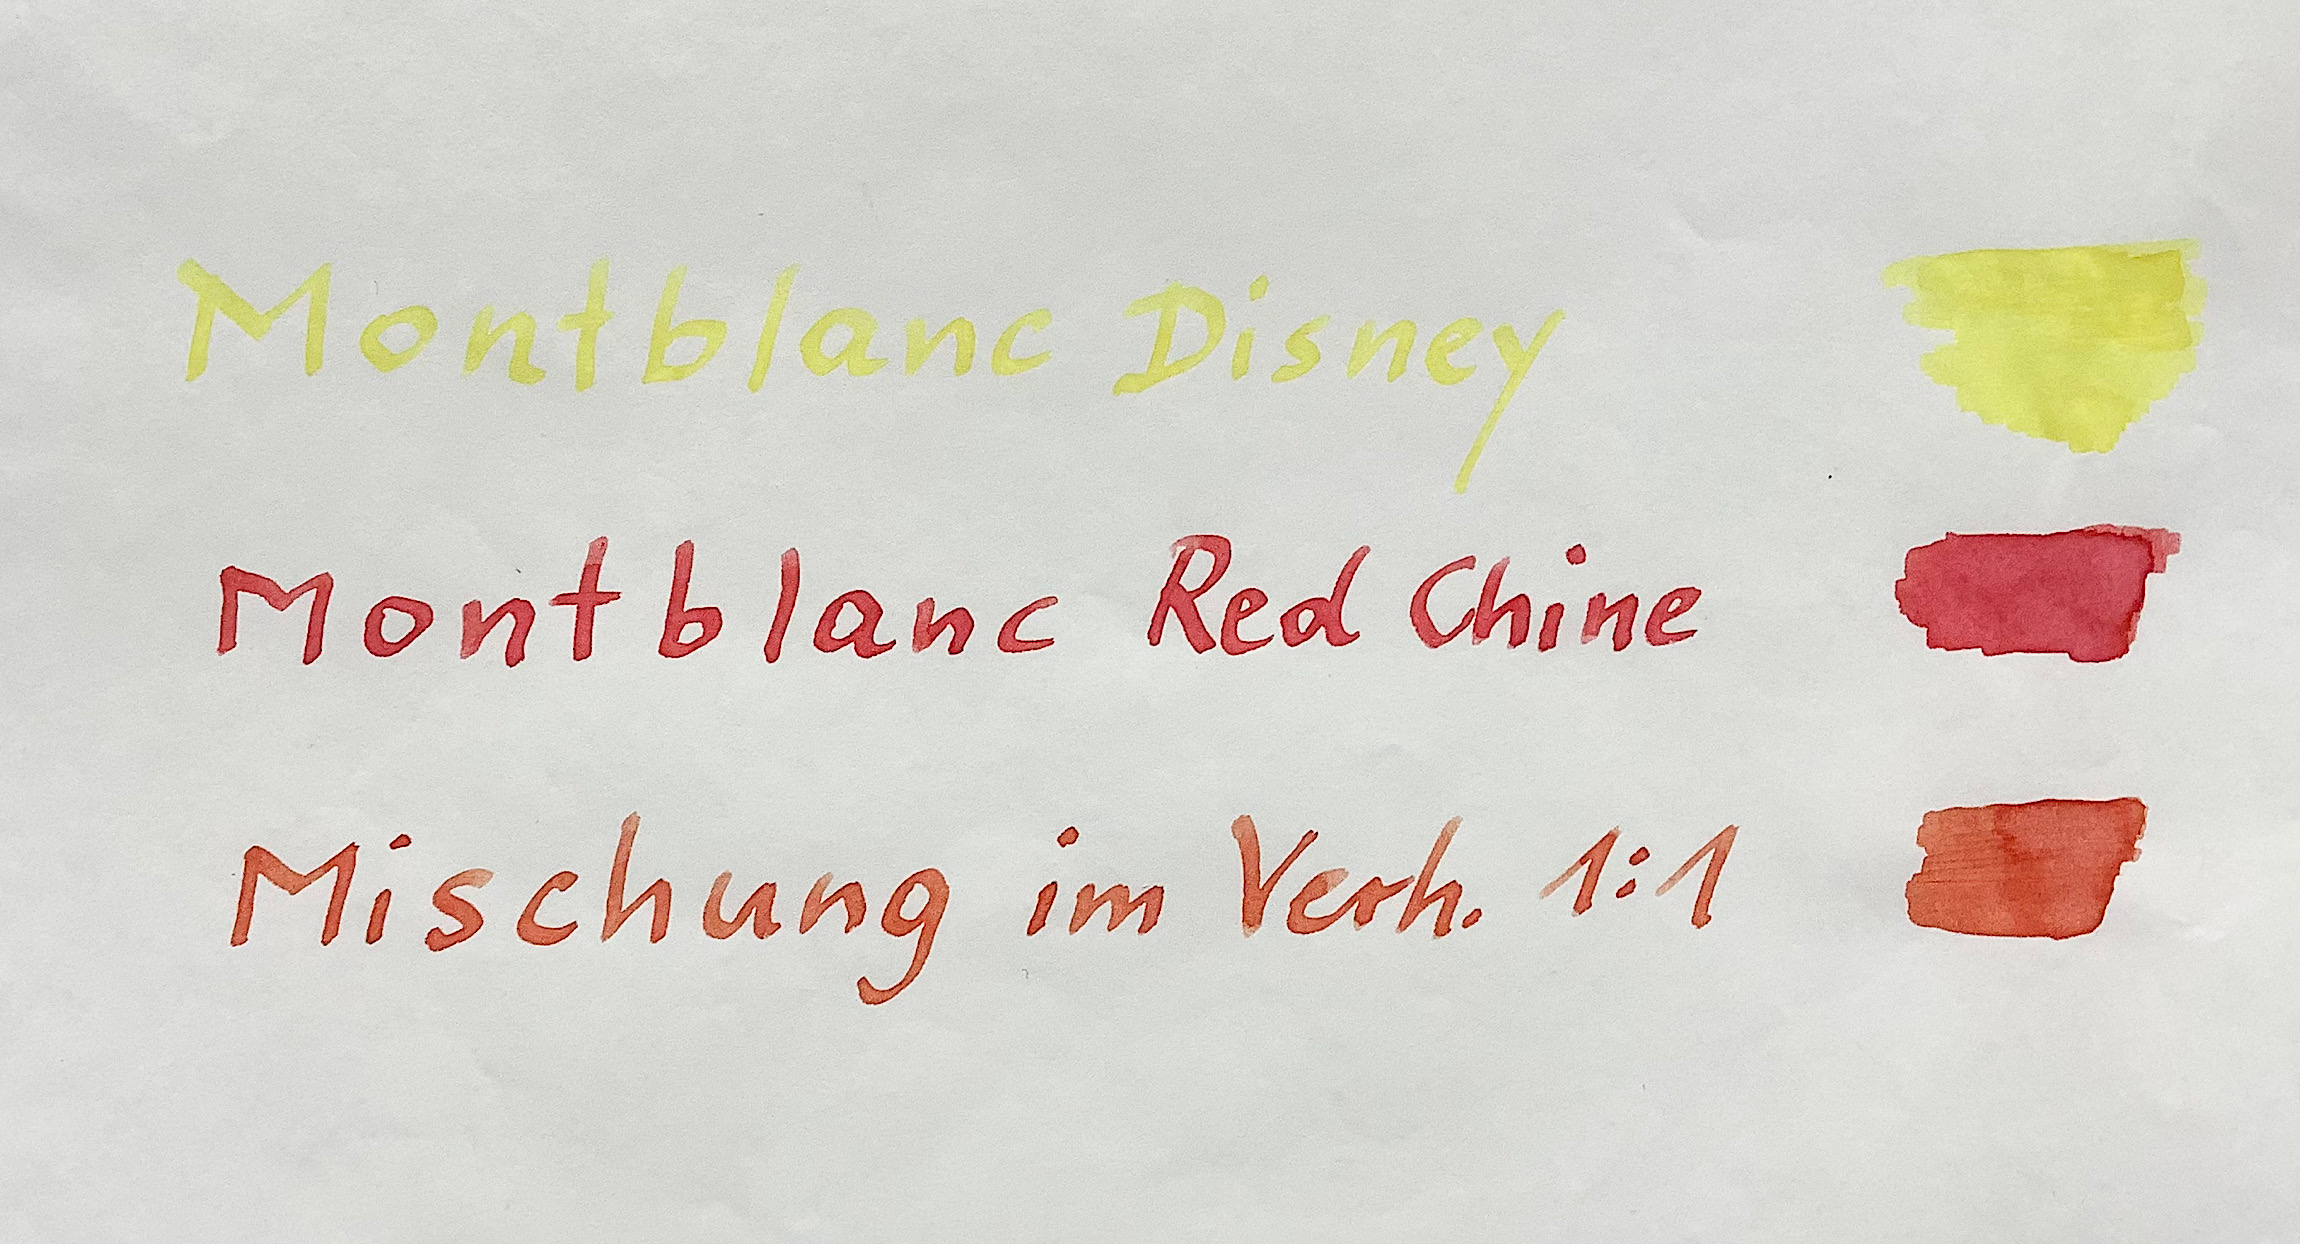 Montblanc Disney
Montblanc Red Chine
Mischung im Verh. 1:1